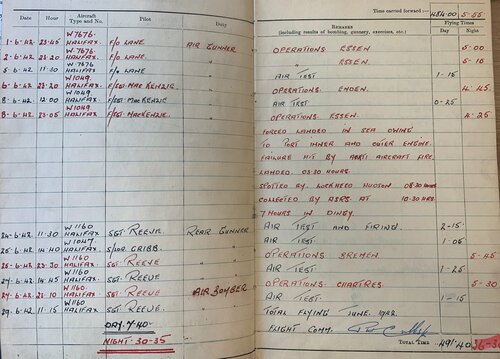 Time carried forward:— 484·00 5-55
Date Hour Aircraft Type and No. Pilot Duty REMARKS (including results of bombing, gunnery, exercises, etc.) Flying Times Day Night
1·6·42 23·45 W7676. HALIFAX. F/O LANE AIR GUNNER OPERATIONS ESSEN 5-00
2·6·42 23·20 W·7676. HALIFAX. F/O LANE. " " ESSEN 5-15
5·6·42 11·30 W·7676 HALIFAX. F/O LANE " AIR TEST 1-15
6·6·42 23·20 W1049. HALIFAX. F/SGT. MACKENZIE " OPERATIONS. EMDEN. 4·45
8·6·42 12·00 W·1049. HALIFAX. F/SGT. MACKENZIE " AIR TEST 0-25
8·6·42 23·05 W1049. HALIFAX. F/SGT. MACKENZIE. " OPERATIONS ESSEN. 4·25
FORCED LANDED IN SEA OWING
TO PORT INNER AND OUTER ENGINE
FAILURE HIT BY ANTI AIRCRAFT FIRE
LANDED 03·30 HOURS.
SPOTTED BY LOCKHEED HUDSON 08·30 HOURS
COLLECTED BY ASRS AT 10·30 HRS
7 HOURS IN DINGY.
24·6·42 W1160 HALIFAX SGT REEVE. REAR GUNNER AIR TEST AND FIRING. 2-15
25·6·42 14·40 W1047. HALIFAX. S/LDR GRIBB. " AIR TEST. 1·05
25·6·42 23·30 W1160 HALIFAX. SGT REEVE " OPERATIONS BREMEN. 5-45
27·6·42 14·45 W1160 HALIFAX SGT REEVE " AIR TEST. 1-25
27·6·42 21·10 W1160 HALIFAX SGT REEVE AIR BOMBER OPERATIONS CHARTRES 5-30
29·6·42 11·15 W1160 HALIFAX. SGT REEVE. " AIR TEST. 1-15
DAY. 7·40· TOTAL FLYING JUNE. 1942.
NIGHT 30-35 FLIGHT COMM.
TOTAL TIME 491/40